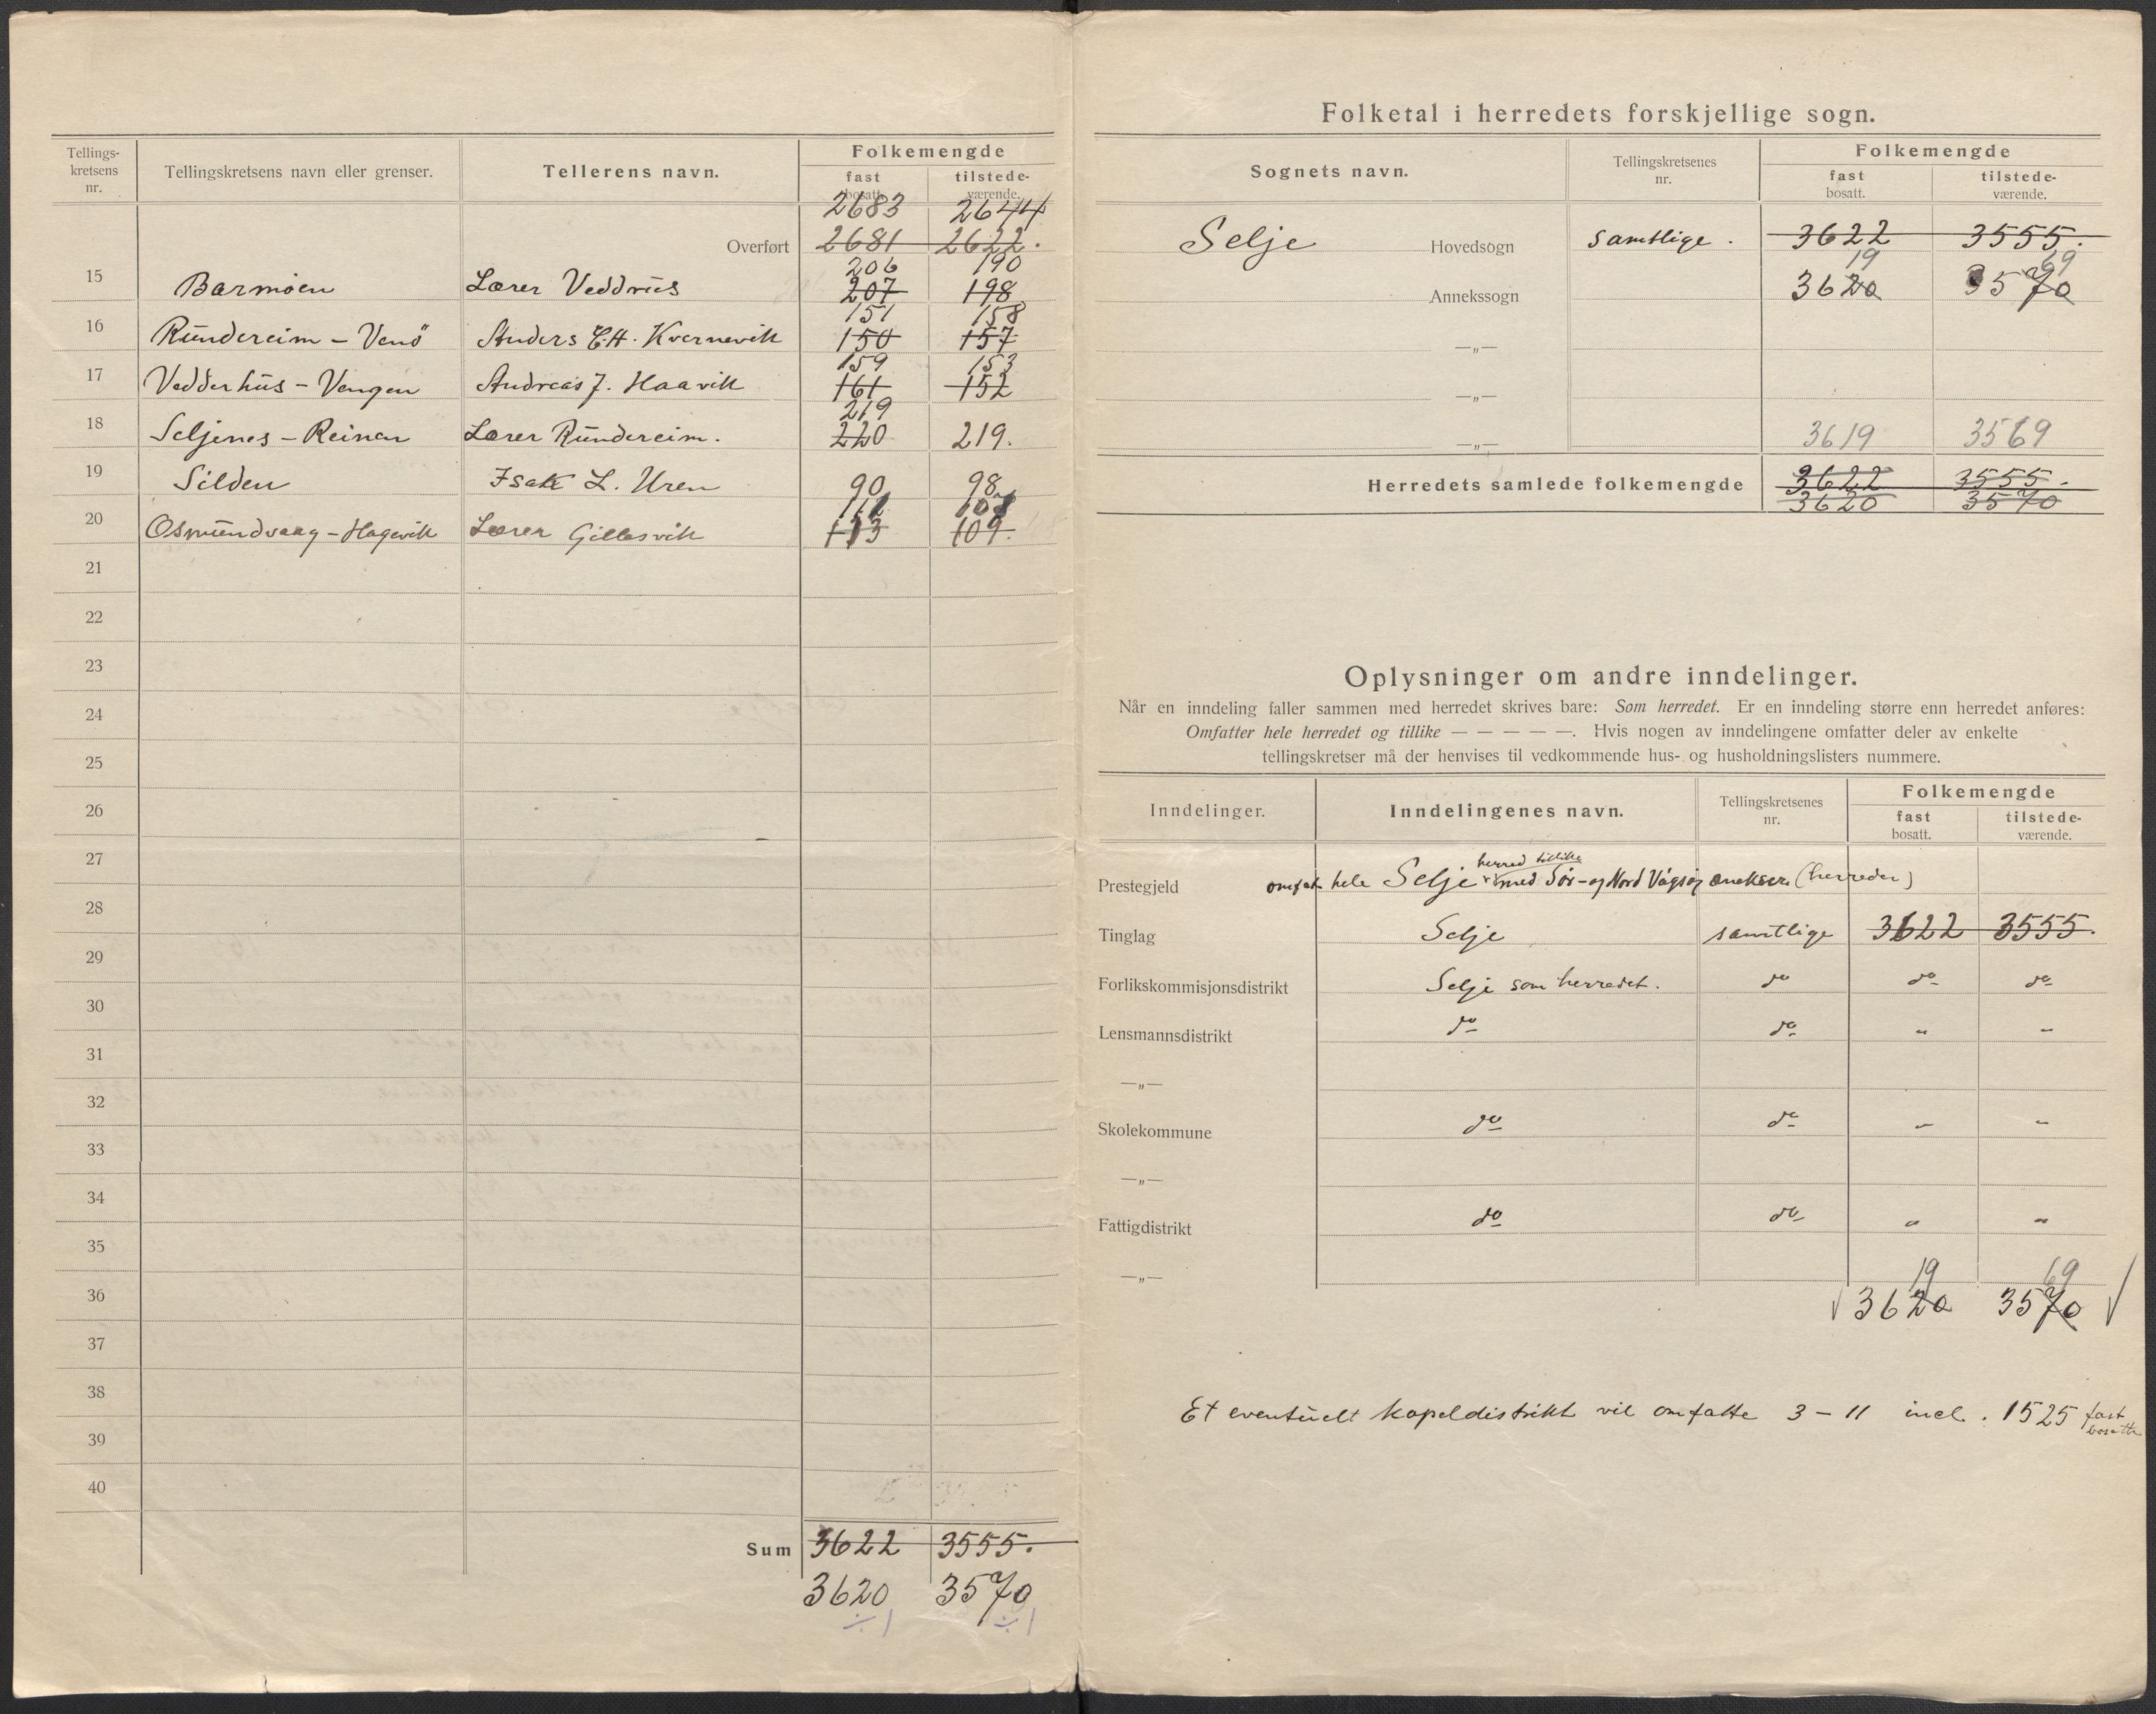 Tellings-
kretsens
nr.
Tellingskretsens navn eller grenser.
Tellerens navn.
Folkemengde
fast
bosatt.
tilstede-
værende.
2683 2644
Overført 2681 2622.
206 190
15 Barmöen Lærer Veddvies 207 198
151 158
16 Rundereim - Venö Anders E.H. Kvernevik 150 157
159 153
17 Vedderhus - Vengen Andreas J. Haavik 161 152
219
18 Seljenes - Reinen Lærer Rundereim. 220 219.
19 Silden Isak L. Uren 90 98
112 108
20 Osmundvaag - Hagevik Lærer Gillesvik 113 109.
21
22
23
24
25
26
27
28
29
30
31
32
33
34
35
36
37
38
39
40
Sum 3622 3555.
3620 3570
÷1 ÷1
Folketal i herredets forskjellige sogn.
Sognets navn.
Tellingskretsenes
nr.
Folkemengde
fast
bosatt.
tilstede-
værende.
Selje Hovedsogn samtlige. 3622 3555.
19 69
Annekssogn 3620 3570
—„—
—„—
—„— 3619 3569
Herredets samlede folkemengde 3622 3555.
3620 3570
Oplysninger om andre inndelinger.
Når en inndeling faller sammen med herredet skrives bare: Som herredet. Er en inndeling større enn herredet anføres:
Omfatter hele herredet og tillike — — — — —. Hvis nogen av inndelingene omfatter deler av enkelte
tellingskretser må der henvises til vedkommende hus- og husholdningslisters nummere.
Inndelinger.
Inndelingenes navn.
Tellingskretsenes
nr.
Folkemengde
fast
bosatt.
tilstede-
værende.
herred tillike
Prestegjeld omfat. hele Selje med Sør- og Nord Vågsøy anekser (herreder)
Tinglag Selje samtlige 3622 3555.
Forlikskommisjonsdistrikt Selje som herredet. do do do
Lensmannsdistrikt do do " "
—„—
Skolekommune do do " "
—„—
Fattigdistrikt do do " "
—„—
19 69
3620 3570
Et eventuelt kapeldistrikt vil omfatte 3 - 11 incl. 1525 fast
bosatte